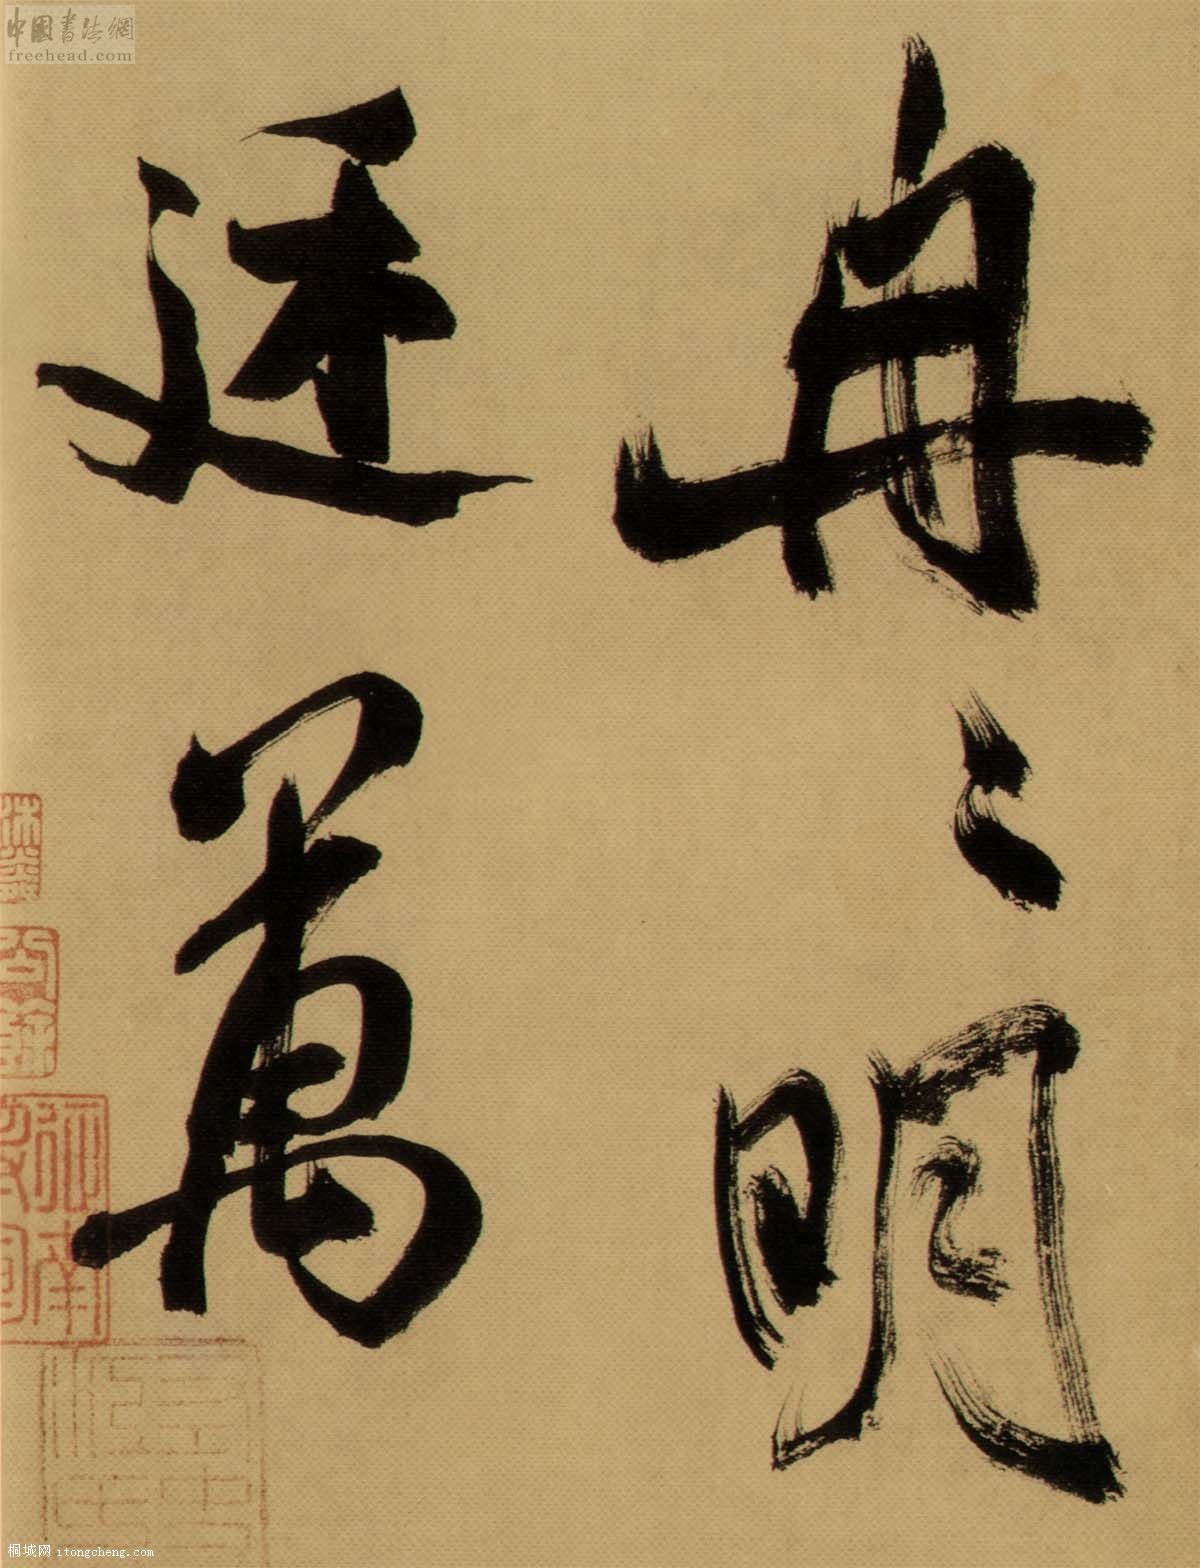 中國書法網
freehead.com
冉〻明
廷萬
桐城网 itongcheng.com